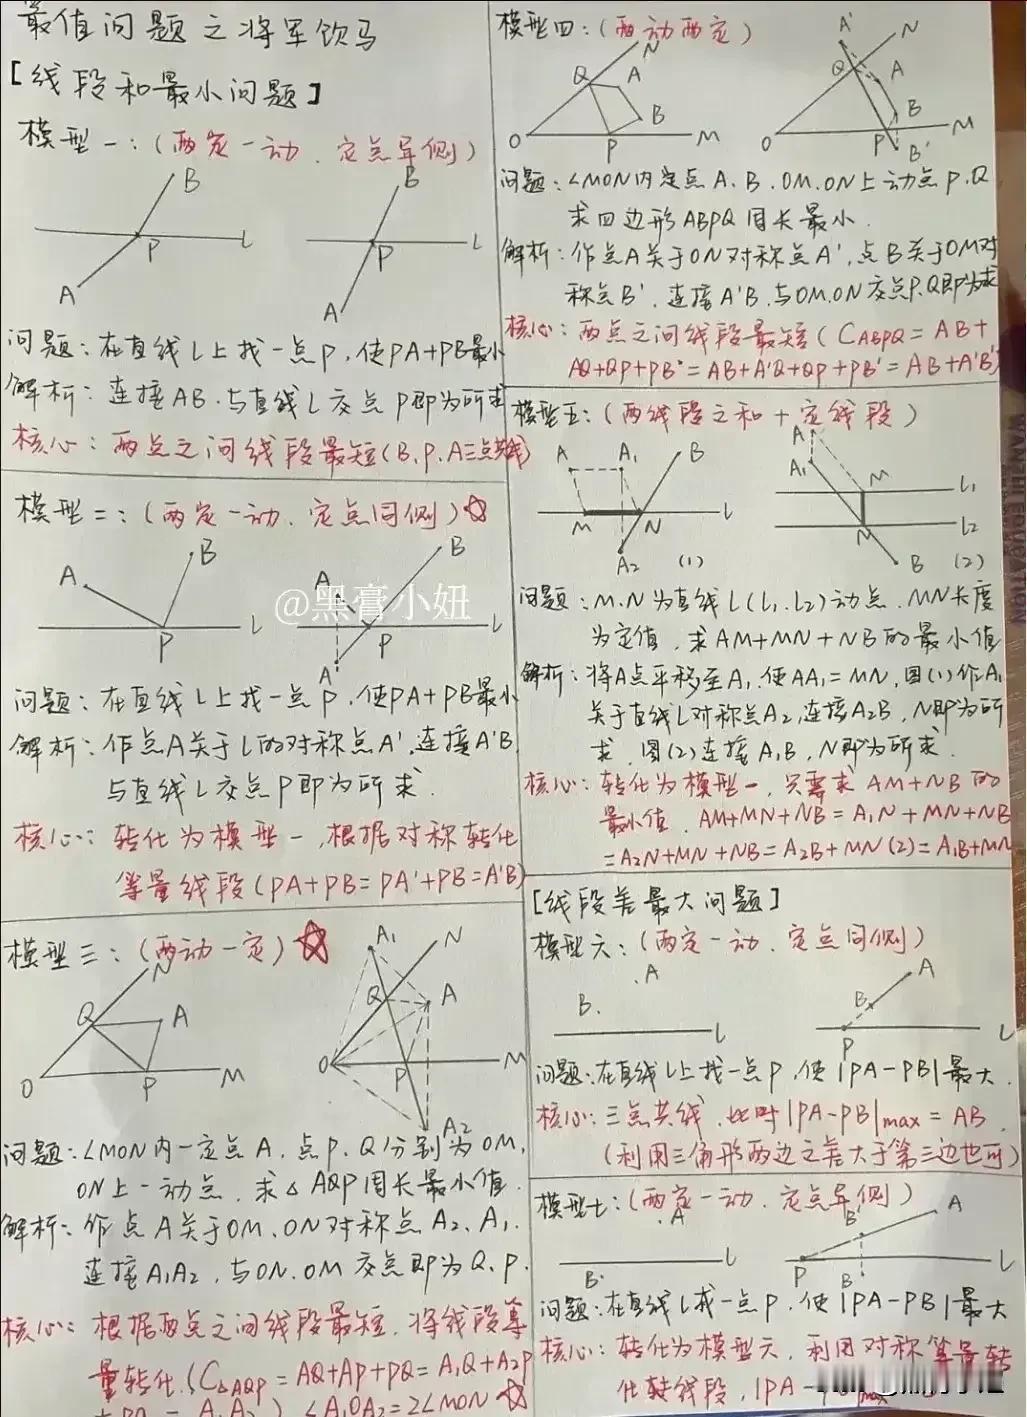 最值问题之将军饮马
[线段和最小问题]
模型一:(两定一动、定点异侧)
B
B
P
L
P
L
A
A
问题:在直线L上找一点P,使PA+PB最小
解析:连接AB.与直线L交点P即为所求
核心:两点之间线段最短(B.P.A三点共线)
模型二:(两定一动、定点同侧)☆
A
B
A
B
P
L
P
L
A'
@黑膏小妞
问题:在直线L上找一点P,使PA+PB最小
解析:作点A关于L的对称点A',连接A'B,
与直线L交点P即为所求.
核心:转化为模型一,根据对称转化
等量线段(PA+PB=PA'+PB=A'B)
模型三:(两动一定)☆
N
Q
A
O
P
M
A1
N
Q
A
O
P
M
A2
问题:∠MON内一定点A.点P.Q分别为OM,
ON上一动点.求△AQP周长最小值.
解析:作点A关于OM.ON对称点A2、A1.
连接A1A2,与ON.OM交点即为Q.P.
核心:根据两点之间线段最短.将线段等
量转化.(C△AQP=AQ+AP+PQ=A1Q+A2P
+PQ=A1A2)∠A1OA2=2∠MON☆
模型四:(两动两定)
N
Q
A
B
O
P
M
A'
N
Q
A
B
O
P
M
B'
问题:∠MON内定点A.B.OM.ON上动点P.Q
求四边形ABPQ周长最小.
解析:作点A关于ON对称点A',点B关于OM对
称点B'.连接A'B.与OM.ON交点P.Q即为求
核心:两点之间线段最短(CABPQ=AB+
AQ+QP+PB=AB+A'Q+QP+PB'=AB+A'B')
模型五:(两线段之和+定线段)
A
A1
B
M
N
L
A2
(1)
A
A1
M
L1
L2
N
B
(2)
问题:M.N为直线L(L1.L2)动点.MN长度
为定值,求AM+MN+NB的最小值
解析:将A点平移至A1.使AA1=MN,图(1)作A1
关于直线L对称点A2,连接A2B,N即为所
求.图(2)连接A1B,N即为所求.
核心:转化为模型一,只需求AM+NB的
最小值.AM+MN+NB=A1N+MN+NB
=A2N+MN+NB=A2B+MN(2)=A1B+MN
[线段差最大问题]
模型六:(两定一动、定点同侧)
A
B
L
A
B
P
L
问题:在直线L上找一点P,使|PA-PB|最大.
核心:三点共线.此时|PA-PB|max=AB.
(利用三角形两边之差大于第三边也可)
模型七:(两定一动、定点异侧)
A
B
L
B'
A
P
B
L
问题:在直线L找一点P,使|PA-PB|最大
核心:转化为模型六,利用对称等量转
化转线段,|PA-
EDUCATION